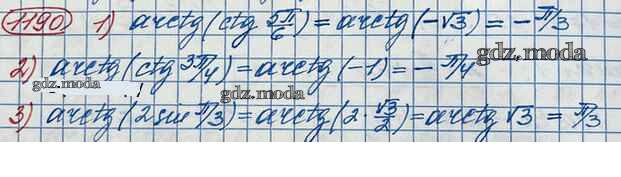 1190 1) arctg(ctg 5π/6) = arctg(-√3) = -π/3
gdz.moda
2) arctg(ctg 3π/4) = arctg(-1) = -π/4
gdz.moda
gdz.moda
3) arctg(2 sin π/3) = arctg(2 · √3/2) = arctg √3 = π/3